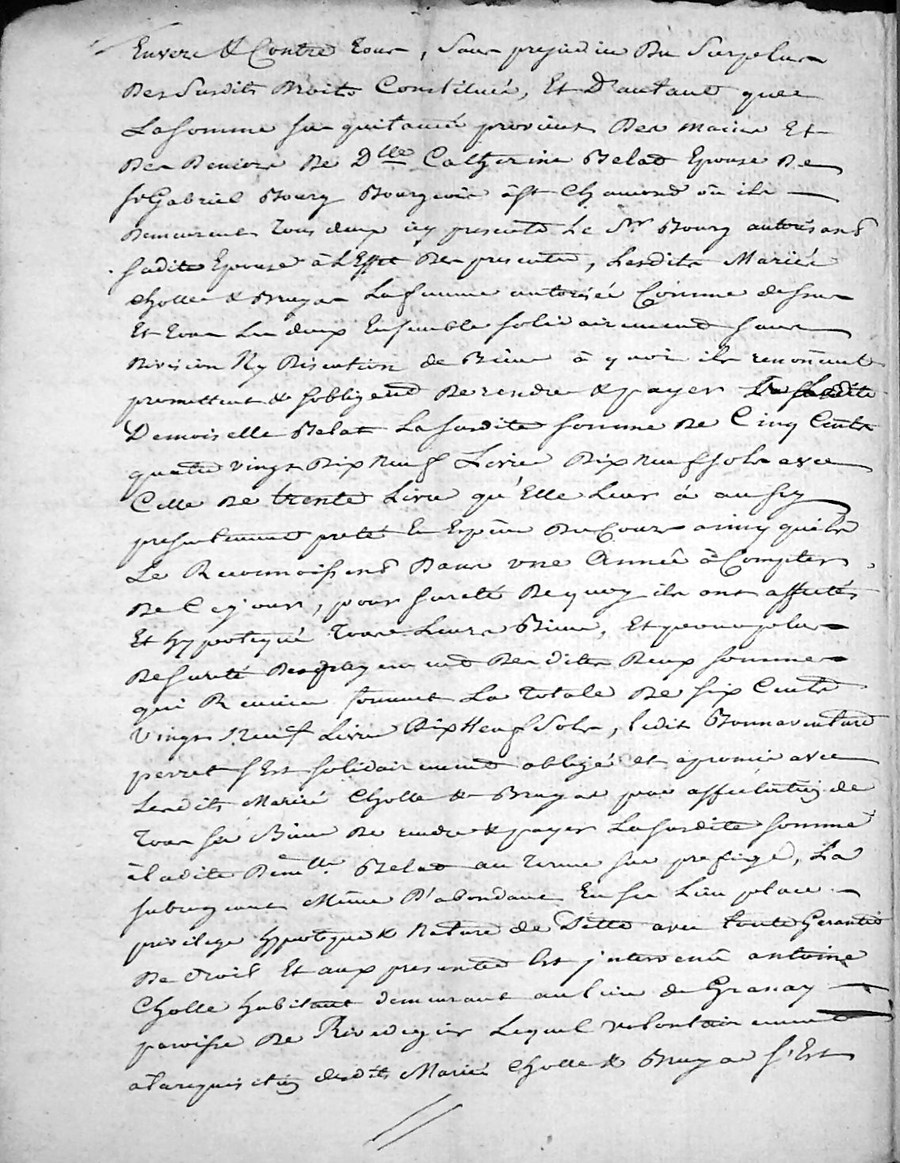 Envers & Contre tous, sans prejudice Du Surplus
Des Susdits Droits Constitués, Et D'autant que
La somme sus quitancée provient Des mains Et
Des Deniers De Dlle Catherine Belat Epouse De
Sr Gabriel Bourg Bourgeois à St Chamond où ils
Demeurent tous deux icy presents Le Sr Bourg autorisant
sadite Epouse à L'Effet Des presentes, Lesdits Mariés
Cholle & Bruyas La femme autorisée Comme dessus
Et tous Les deux Ensemble solidairement sans
Division Ny Discution de Biens à quoi ils renoncent
promettent & s'obligent De rendre & payer à Ladite
Demoiselle Belat La susdite somme De Cinq Cents
quatre vingt Dix Neuf Livres Dix Neuf sols avec
Celle De trente Livres qu'Elle Leur à aussy
presentement preté En Espèce De Cours ainsy qu'ils
Le Reconnoissent Dans une Année à Compter
De Ce jour, pour sureté De quoy ils ont affectés
Et hyppotequé tous Leurs Biens, Et pour plus
De sureté Du payement Desdites Deux sommes
qui Reunies forment La totale De six Cents
Vingt Neuf Livres Dix Neuf Sols, ledit Bonnaventure
perret s'Est solidairement obligé et a promis avec
Lesdits Mariés Cholle & Bruyas par affectation de
tous ses Biens De rendre & payer La susdite somme
à ladite Demlle Belat au terme sus prefigé, La
subrogeant Même D'abondant En ses Lieu place
privilege hyppoteque & Nature de Dette avec toute Garantie
De droit Et aux presentes Est intervenu antoine
Cholle habitant demeurant au lieu de Granay
paroisse De Rivedegier Lequel volontairement
à la requisition desdits Mariés Cholle & Bruyas s'Est